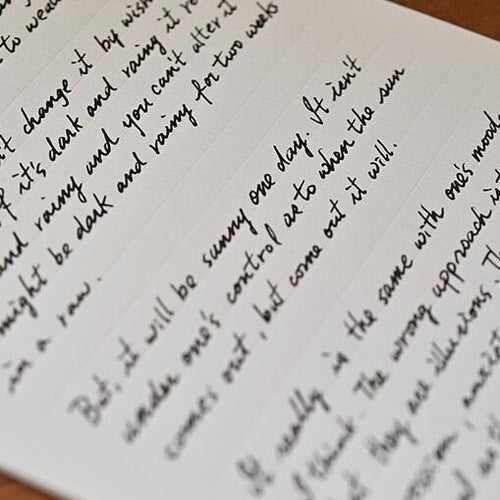 to wea
't change it by wish
it's dark and raining it re
and rainy and you can't alter it
might be dark and rainy for two weeks
in a row.
But, it will be sunny one day. It isn't
under one's control as to when the sun
comes out, but come out it will.
It really is the same with one's mood
I think. The wrong approach is t
t they are illusions. Th